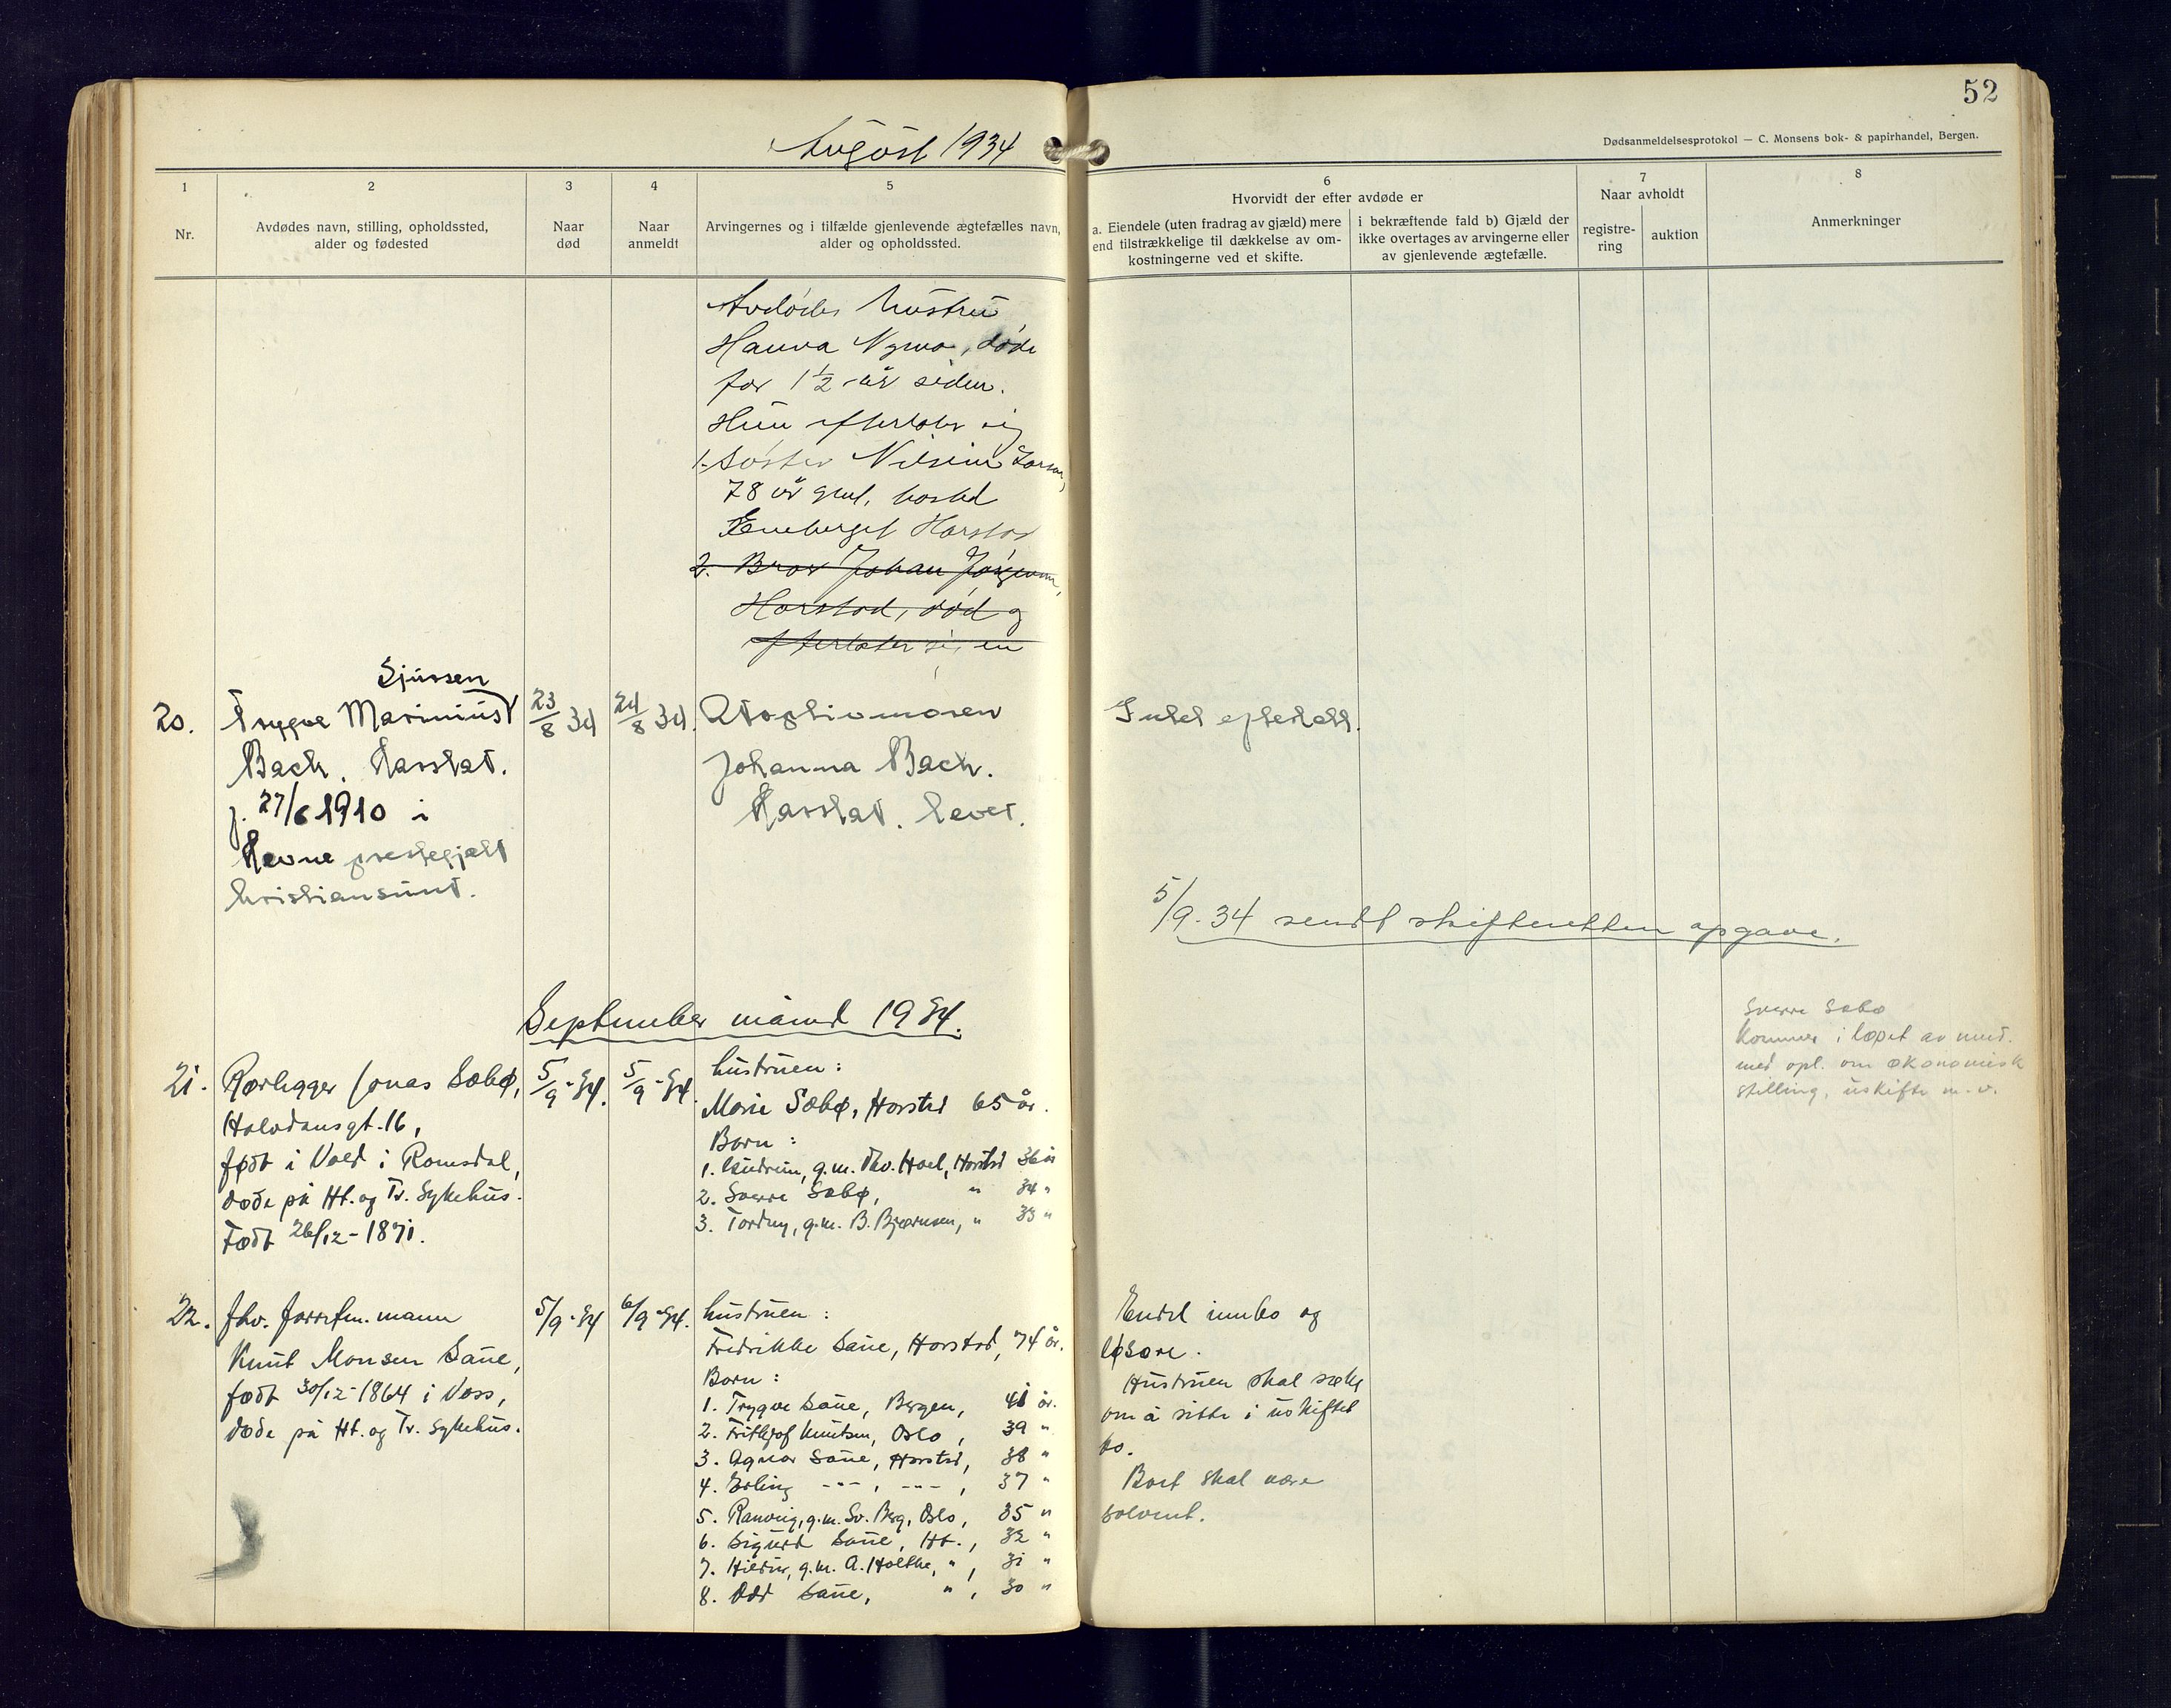 52
August 1934
Dødsanmeldelsesprotokol — C. Monsens bok- & papirhandel, Bergen.
1
Nr.
2
Avdødes navn, stilling, opholdssted,
alder og fødested
3
Naar
død
4
Naar
anmeldt
5
Arvingernes og i tilfælde gjenlevende ægtefælles navn,
alder og opholdssted.
6
Hvorvidt der efter avdøde er
a. Eiendele (uten fradrag av gjæld) mere
end tilstrækkelige til dækkelse av om-
kostningerne ved et skifte.
i bekræftende fald b) Gjæld der
ikke overtages av arvingerne eller
av gjenlevende ægtefælle.
7
Naar avholdt
registre-
ring
auktion
8
Anmerkninger
Avdødes hustru
Hanna Nymo, døde
for 1½ år siden.
Hun efterlater sig
1. Søster
78 år gml. bosted
Harstad
2. Bror Johan Jørgensen,
Harstad, død og
efterlater sig en
Sjursen
20. Trygve Marinius
Bach. Harstad.
f. 27/6 1910 i
Hevne prestegjeld
kristiansund.
23/8 34
24/8 34.
Adoptivmoren
Johanna Bach.
Harstad. lever.
Intet efterlatt.
5/9-34 sendt skifteretten opgave.
September måned 1934.
21. Rørlegger Jonas Sæbø,
Halvdansgt. 16,
født i Vold i Romsdal,
døde på Ht. og Tr. Sykehus.
Født 26/12-1871.
5/9-34.
5/9-34.
hustruen:
Marie Sæbø, Harstad 65 år.
Barn:
1. Gudrun, g.m. Thv. Hoel, Harstad 36 år
2. Sverre Sæbø, " 34 "
3. Tordny, g.m. B. Bjørnsen, " 33 "
Sverre Sæbø
kommer i løpet av mnd.
med opl. om økonomisk
stilling, uskifte m.v.
22. fhv. forretn.mann
Knut Monsen Saue,
født 30/12-1864 i Voss,
døde på Ht. og Tr. sykehus.
5/9-34
6/9-34.
hustruen:
Fredrikke Saue, Harstad, 74 år.
Barn:
1. Trygve Saue, Bergen, 41 år.
2. Frithjof Knutsen, Oslo, 39 "
3. Agnar Saue, Harstad, 38 "
4. Erling --- , --- , 37 "
5. Ranveig, g.m. Sv. Berg, Oslo, 35 "
6. Sigurd Saue, Ht., 32 "
7. Hildur, g.m. A. Holthe, " , 31 "
8. Odd Saue, " , 30 "
Endel innbo og
løsøre.
Hustruen skal søke
om å sitte i uskiftet
bo.
Boet skal være
solvent.